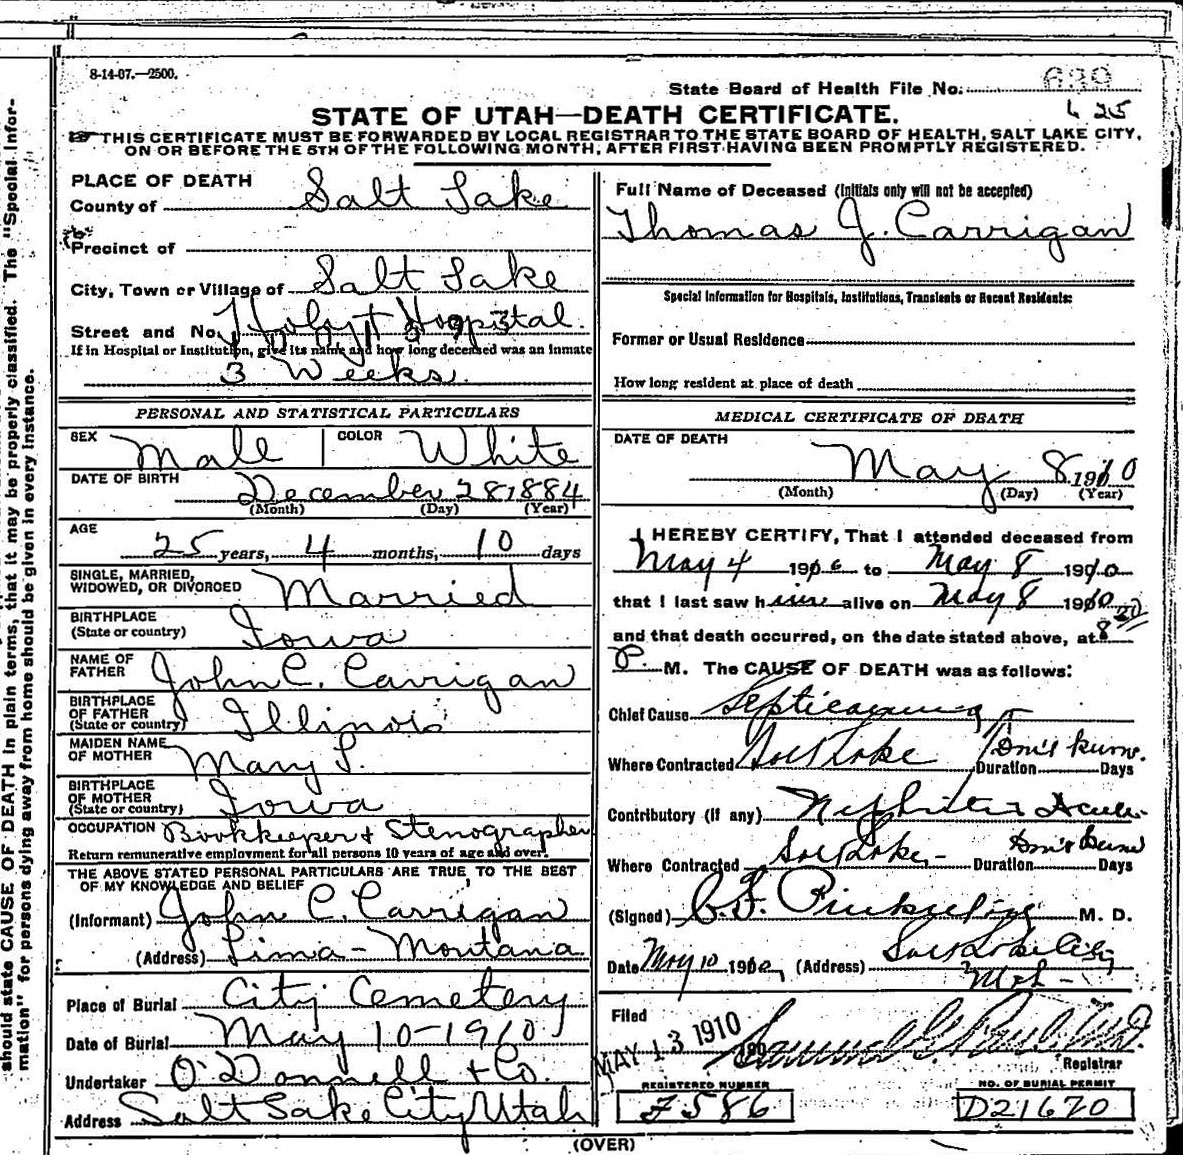 8-14-07.—2500.
State Board of Health File No. 639
425
STATE OF UTAH—DEATH CERTIFICATE.
THIS CERTIFICATE MUST BE FORWARDED BY LOCAL REGISTRAR TO THE STATE BOARD OF HEALTH, SALT LAKE CITY,
ON OR BEFORE THE 5TH OF THE FOLLOWING MONTH, AFTER FIRST HAVING BEEN PROMPTLY REGISTERED.
should state CAUSE OF DEATH in plain terms, that it may be properly classified. The "Special Infor-
mation" for persons dying away from home should be given in every instance.
PLACE OF DEATH
County of Salt Lake
Precinct of
City, Town or Village of Salt Lake
Street and No. Hospital
If in Hospital or Institution, give its name and how long deceased was an inmate
3 Weeks.
PERSONAL AND STATISTICAL PARTICULARS
SEX Male COLOR White
DATE OF BIRTH December 28, 1884
(Month) (Day) (Year)
AGE 25 years, 4 months, 10 days
SINGLE, MARRIED,
WIDOWED, OR DIVORCED Married
BIRTHPLACE
(State or country) Iowa
NAME OF
FATHER John C. Carrigan
BIRTHPLACE
OF FATHER
(State or country) Illinois
MAIDEN NAME
OF MOTHER Mary L.
BIRTHPLACE
OF MOTHER
(State or country) Iowa
OCCUPATION Bookkeeper & Stenographer
Return remunerative employment for all persons 10 years of age and over.
THE ABOVE STATED PERSONAL PARTICULARS ARE TRUE TO THE BEST
OF MY KNOWLEDGE AND BELIEF
(Informant) John C. Carrigan
(Address) Lima - Montana
Place of Burial City Cemetery
Date of Burial May 10 - 1910
Undertaker O'Donnell & Co.
Address Salt Lake City Utah
Full Name of Deceased (Initials only will not be accepted)
Thomas J. Carrigan
Special Information for Hospitals, Institutions, Transients or Recent Residents:
Former or Usual Residence
How long resident at place of death
MEDICAL CERTIFICATE OF DEATH
DATE OF DEATH
May 8 1910
(Month) (Day) (Year)
I HEREBY CERTIFY, That I attended deceased from
May 4 190 to May 8 1910
that I last saw him alive on May 8 1910
and that death occurred, on the date stated above, at 8 20
P. M. The CAUSE OF DEATH was as follows:
Chief Cause Septicaemia
Where Contracted Salt Lake Duration Don't know. Days
Contributory (if any) Nephritis Acute
Where Contracted Salt Lake - Duration Don't know Days
(Signed) M. D.
Date May 10 1910, (Address) Salt Lake City
Utah -
Filed MAY 13 1910 190
Registrar
REGISTERED NUMBER
F586
NO. OF BURIAL PERMIT
D21670
(OVER)